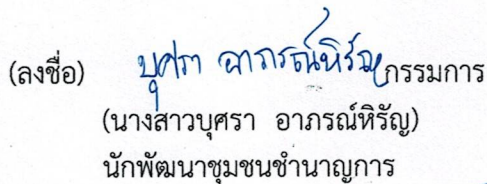 (ลงชื่อ) บุศรา อาภรณ์หิรัญ กรรมการ
(นางสาวบุศรา อาภรณ์หิรัญ)
นักพัฒนาชุมชนชำนาญการ